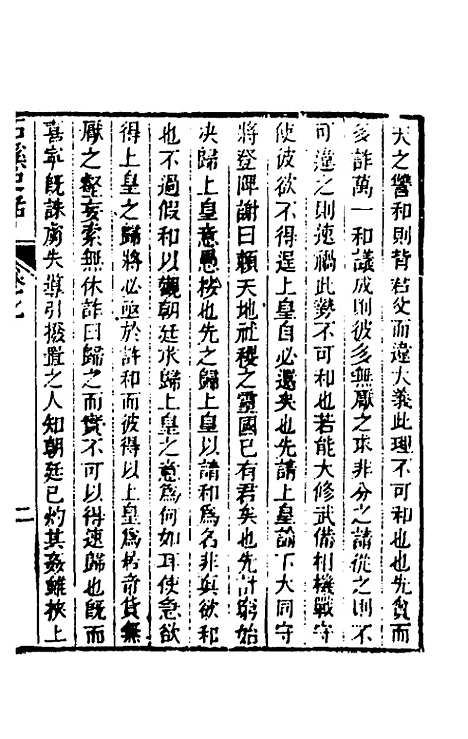 天之讐和則背君父而違大義此理不可和也也先貪而
多詐萬一和議成則彼多無厭之求非分之請從之則不
可違之則速禍此勢不可和也若能大修武備相機戰守
使彼欲不得逞上皇自必還矣也先請上皇諭下大同守
將登陴謝曰賴天地社稷之靈國已有君矣也先計窮始
決歸上皇意愚按也先之歸上皇以請和為名非真欲和
也不過假和以覬朝廷求歸上皇之意為何如耳使急欲
得上皇之歸將必亟於許和而彼得以上皇為奇貨無
厭之壑妄索無休詐曰歸之而實不可以得速歸也既而
喜寧既誅虜失導引撥置之人知朝廷已灼其姦雖挾上
石溪史話
卷之九
二